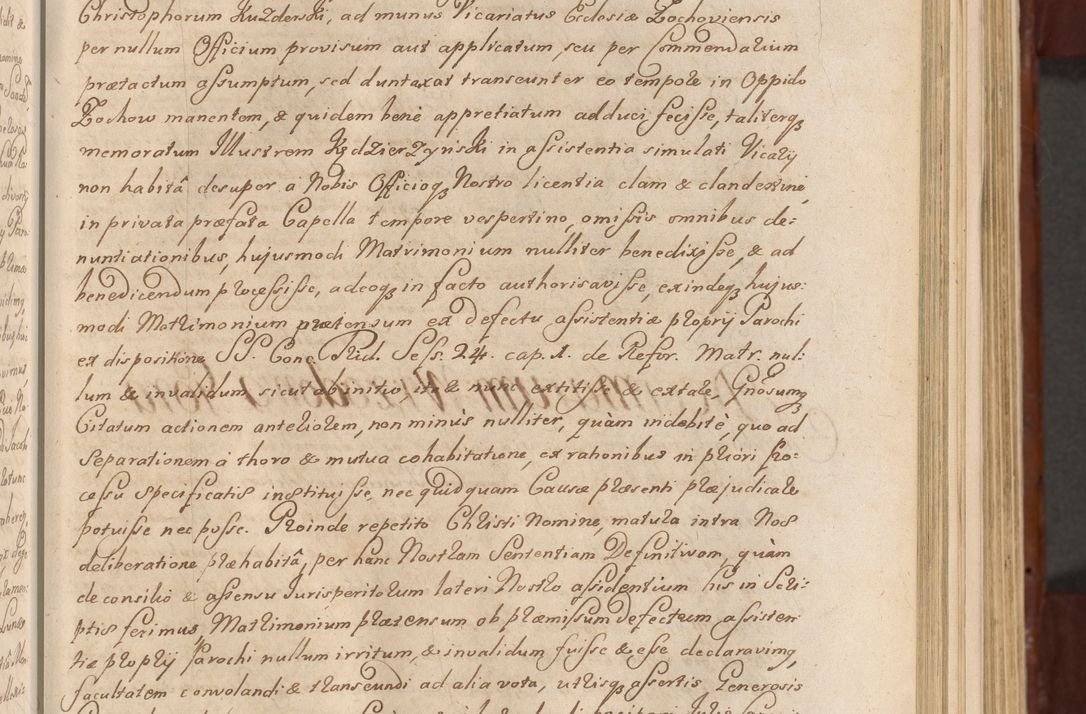 Christophorum Kuzderski, ad munus Vicariatus Eclesiæ Zochoviensis
per nullum Officium provisum aut applicatum, seu per Commendarium
prætactum assumptum, sed duntaxat transeunter eo tempore in Oppido
Zochow manentem, & quidem bene appretiatum adduci fecisse, taliterq
memoratum Illustrem Kędzierzyński in assistentia simulati Vicarij
non habitâ desuper à Nobis Officioq Nostro licentia clam & clandestinè
in privata præfata Capella tempore vespertino, omissis omnibus de=
nuntiationibus, hujusmodi Matrimonium nulliter benedixisse, & ad
benedicendum processisse, adeoq in facto authorisavisse, exindeq hujus=
modi Matrimonium prætensum ex defectu assistentiæ proprij Parochi
ex dispositione SS. Conc. Trid. Sess. 24. cap. 1. de Refor. Matr. nul=
lum & invalidum sicut ab initio ita & nunc extitisse & extare, Gnosumq
Citatum actionem anteriorem, non minùs nulliter, quàm indebitè, quo ad
Separationem à thoro & mutua cohabitatione, ex rationibus in priori Pro=
cessu specificatis instituisse, nec quidquam Causæ præsenti præjudicare
potuisse nec posse. Proinde repetito Christi Nomine, matura intra Nos
deliberatione præhabitâ, per hanc Nostram Sententiam Definitivam, quàm
de consilio & assensu Jurisperitorum lateri Nostro assidentium his in Scri=
ptis ferimus, Matrimonium prætensum ob præmissum defectum assisten
tiæ proprij Parochi nullum irritum, & invalidum fuisse & esse declaravimq,
facultatem convolandi & transeundi ad alia vota, utrisq assertis Generosis